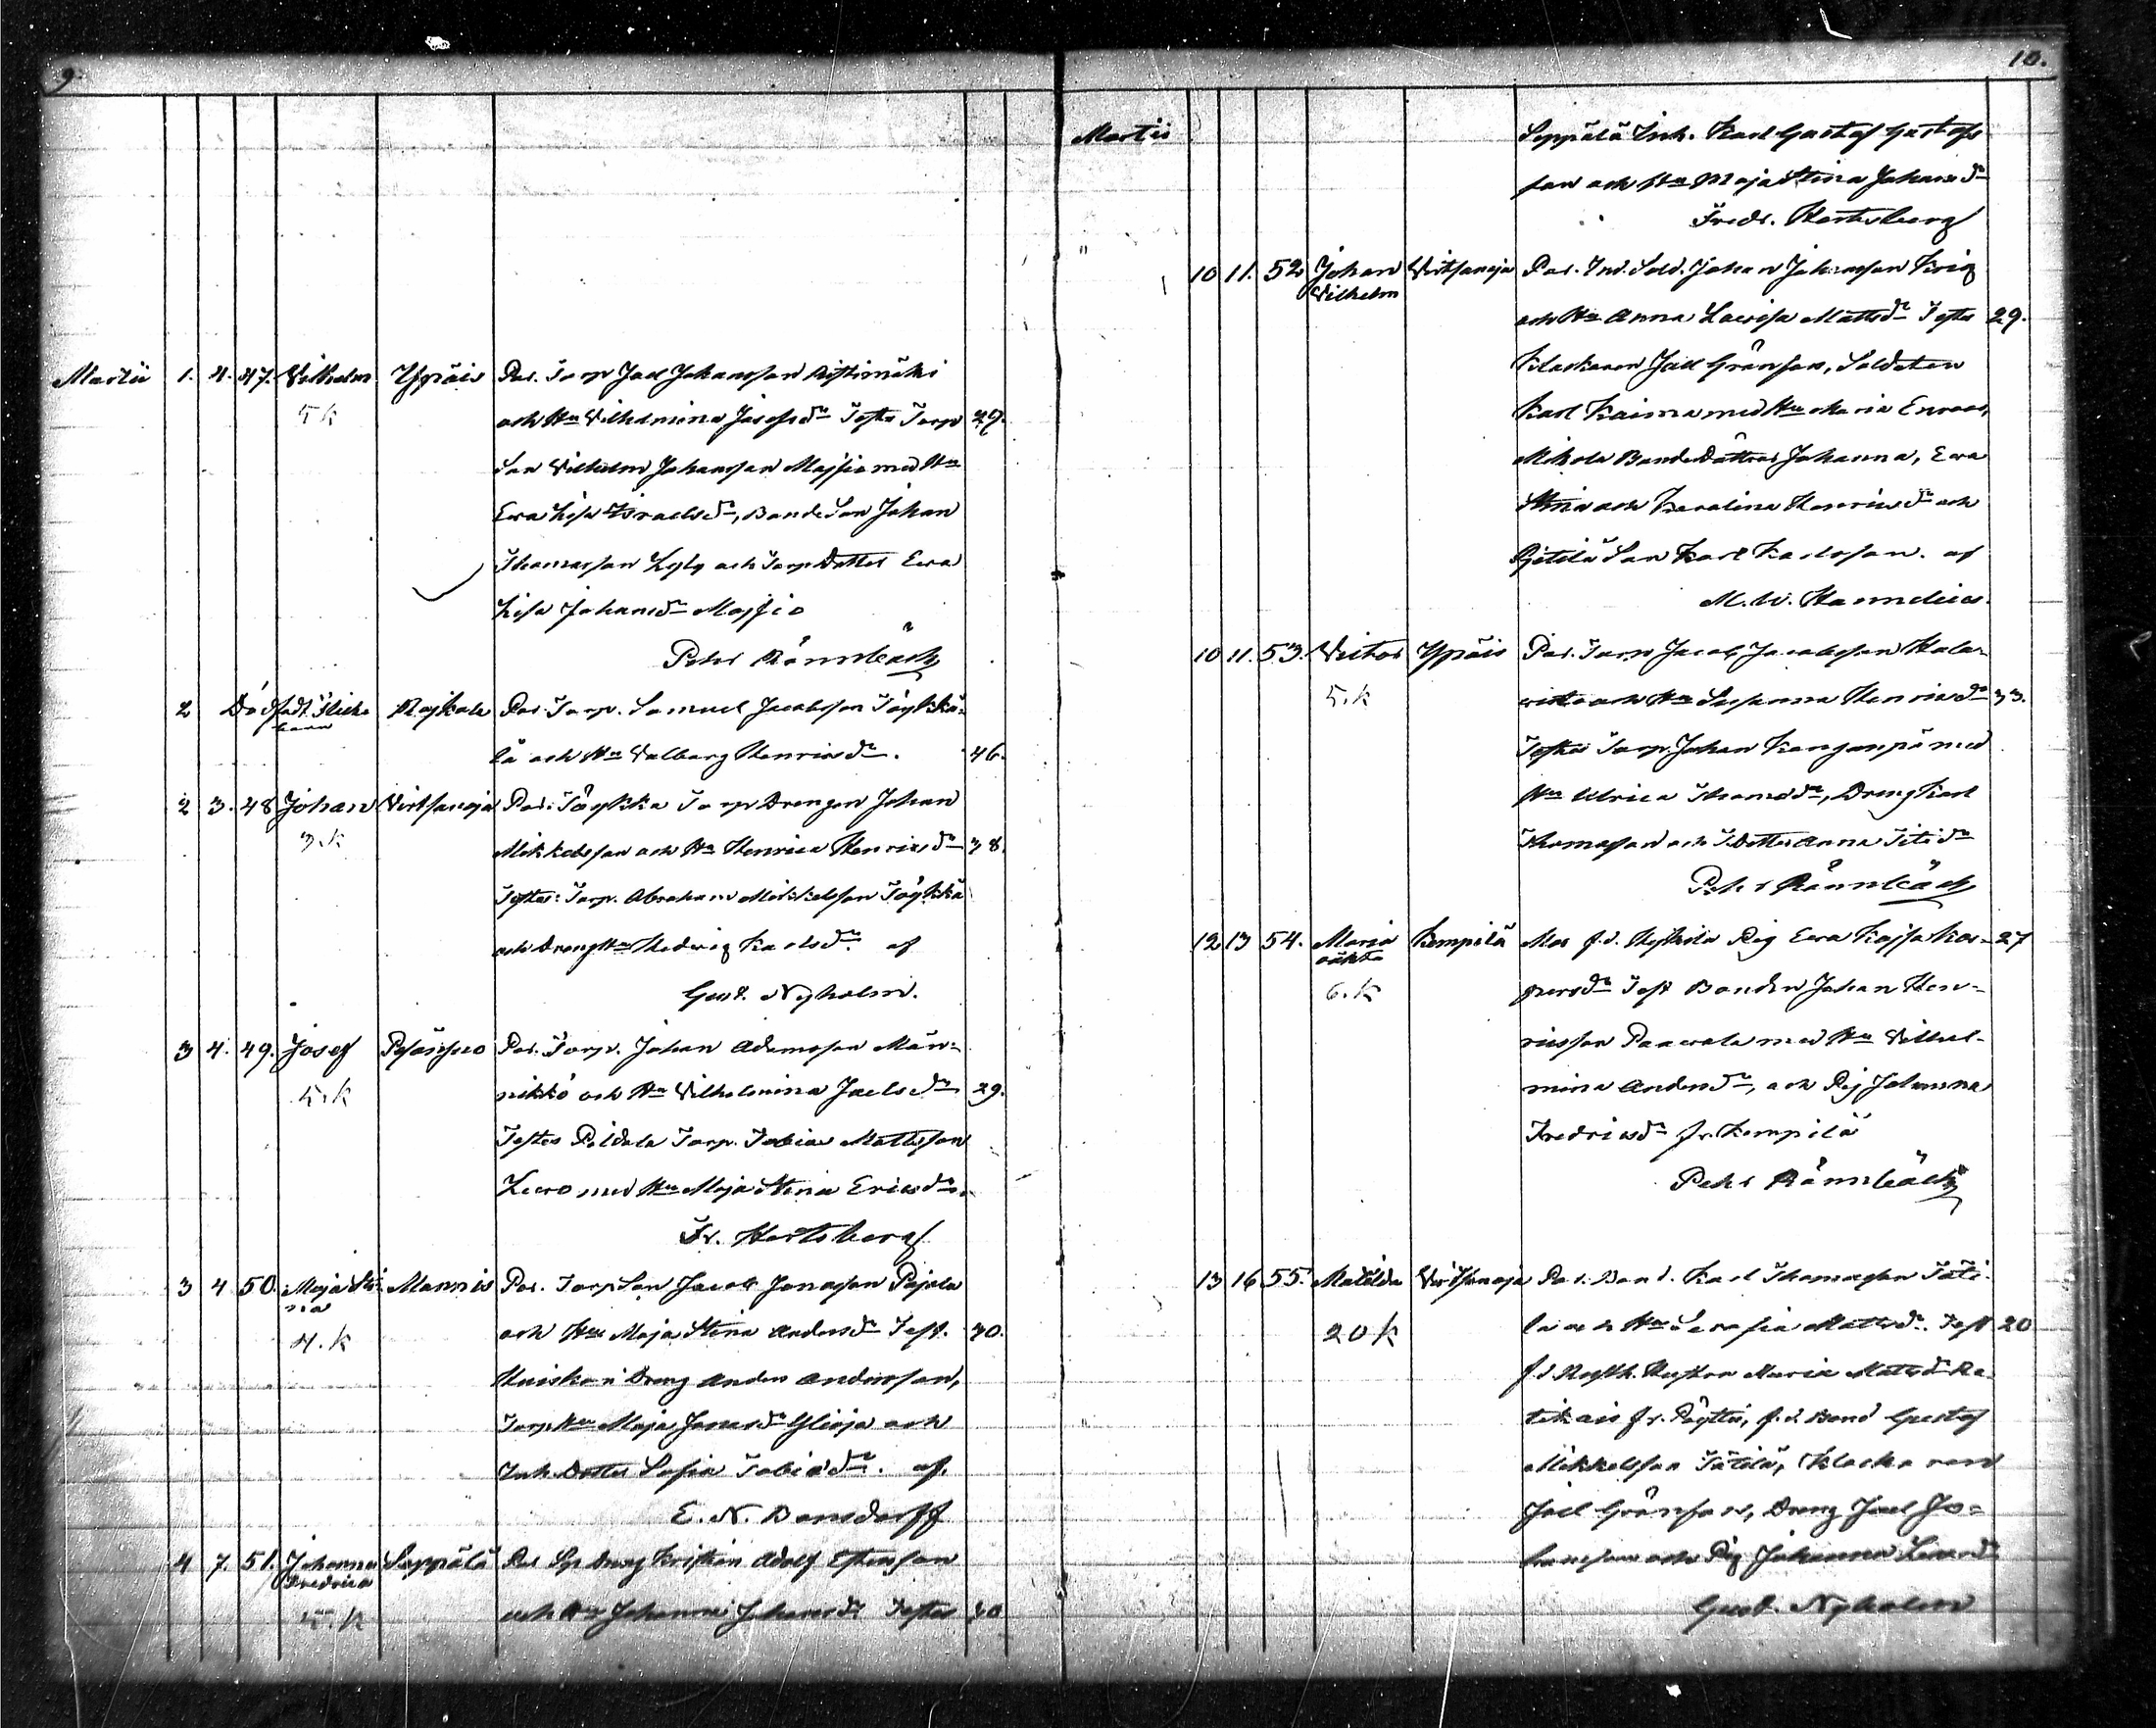 9.
Martii 1. 4. 47. Vilhelm Ypäis Par. Torp Joel Johansson Ristimäki
5 k och Hu Vilhelmina Josefsdr Testes Torp 29.
Son Vilhelm Johansson Massio med Hu
Ewa Lisa Israelsdr, Bonde Son Johan
Thomasson Kyly och Torp Dotter Ewa
Lisa Johansdr Massio
Pehr Rönnbäck
2 Dödfödt Flicke Raikala Par. Torp. Samuel Jacobsson Töykkä-
barn
lä och Hu Valborg Henricsdr. 46.
2 3. 48 Johan Virtsanoja Par. Töykkä Torp Drengen Johan
3. k Mikkelsson och Hu Henrica Henricsdr 38.
Testes: Torp. Abraham Mikkelsson Töykkä
och Dreng Hu Hedwig Karlsdr. af
Gust. Nyholm.
3 4. 49. Josef Par. Torp. Johan Adamsson Män-
5. k nikkö och Hu Vilhelmina Joelsdr 29.
Testes Torp. Tobias Mattsson
med Hu Maja Stina Ericsdr.
Fr. Hertsberg
3 4 50. Maja Sti- Mannis Par. Torp Son Jacob Jonasson Pajala
na
4. k och Hu Maja Stina Andersdr Test. 30.
Huiskan Dreng Anders Andersson,
Torp Hu Maja Jonasdr Ylioja och
Inh. Dotter Sofia Tobiasdr. af
E. N. Bonsdorff
4 7. 51. Johanna Seppälä Par Dreng Kristian Adolf
Fredrica
5. k och Hu Johanna Johansdr Testes 30
10.
Martii Seppälä Inh. Karl Gustaf Gustafs
son och Hu Maja Stina Johansdr
Fredr. Hertsberg
10 11. 52 Johan Virtsanoja Par. Ind. Sold. Johan Johansson Krig
Vilhelm
och Hu Anna Lovisa Mattsdr Testes 29.
Klockaren Joel Grönfors, Soldaten
Karl Kaima med Hu Maria
Mikola Bonde Döttrar Johanna, Ewa
Stina och Karolina Henricsdr och
Son Karl Karlsson. af
M. W. Hannelius.
10 11. 53. Victor Ypäis Par. Torp Jacob Jacobsson
5. k och Hu Susanna Henricsdr 33.
Testes Torp. Johan Kanganpä med
Hu Ulrica Thomsdr, Dreng Karl
Thomasson och T. Dotter Anna
Pehr Rönnbäck
12 13 54. Maria Kempilä Mor f. d. Pig Ewa Kajsa Kas- 27
oäkta
6. k persdr Test Bonden Johan Hen-
ricsson Paavola med Hu Vilhel-
mina Andersdr, och Pig Johanna
Fredricsdr fr. Kempilä
Pehr Rönnbäck
13 16 55. Matilda Virtsanoja Par. Bond. Karl Thomasson Täti-
20 k lä och Hu Serafia Mattsdr. Test 20
f. d. Hustru Maria Mattsdr
fr. Pöytis, f. d. Bond Gustaf
Mikkelsson Tätilä, Klockaren
Joel Grönfors, Dreng Joel Jo-
hansson och Pig Johanna
Gust. Nyholm